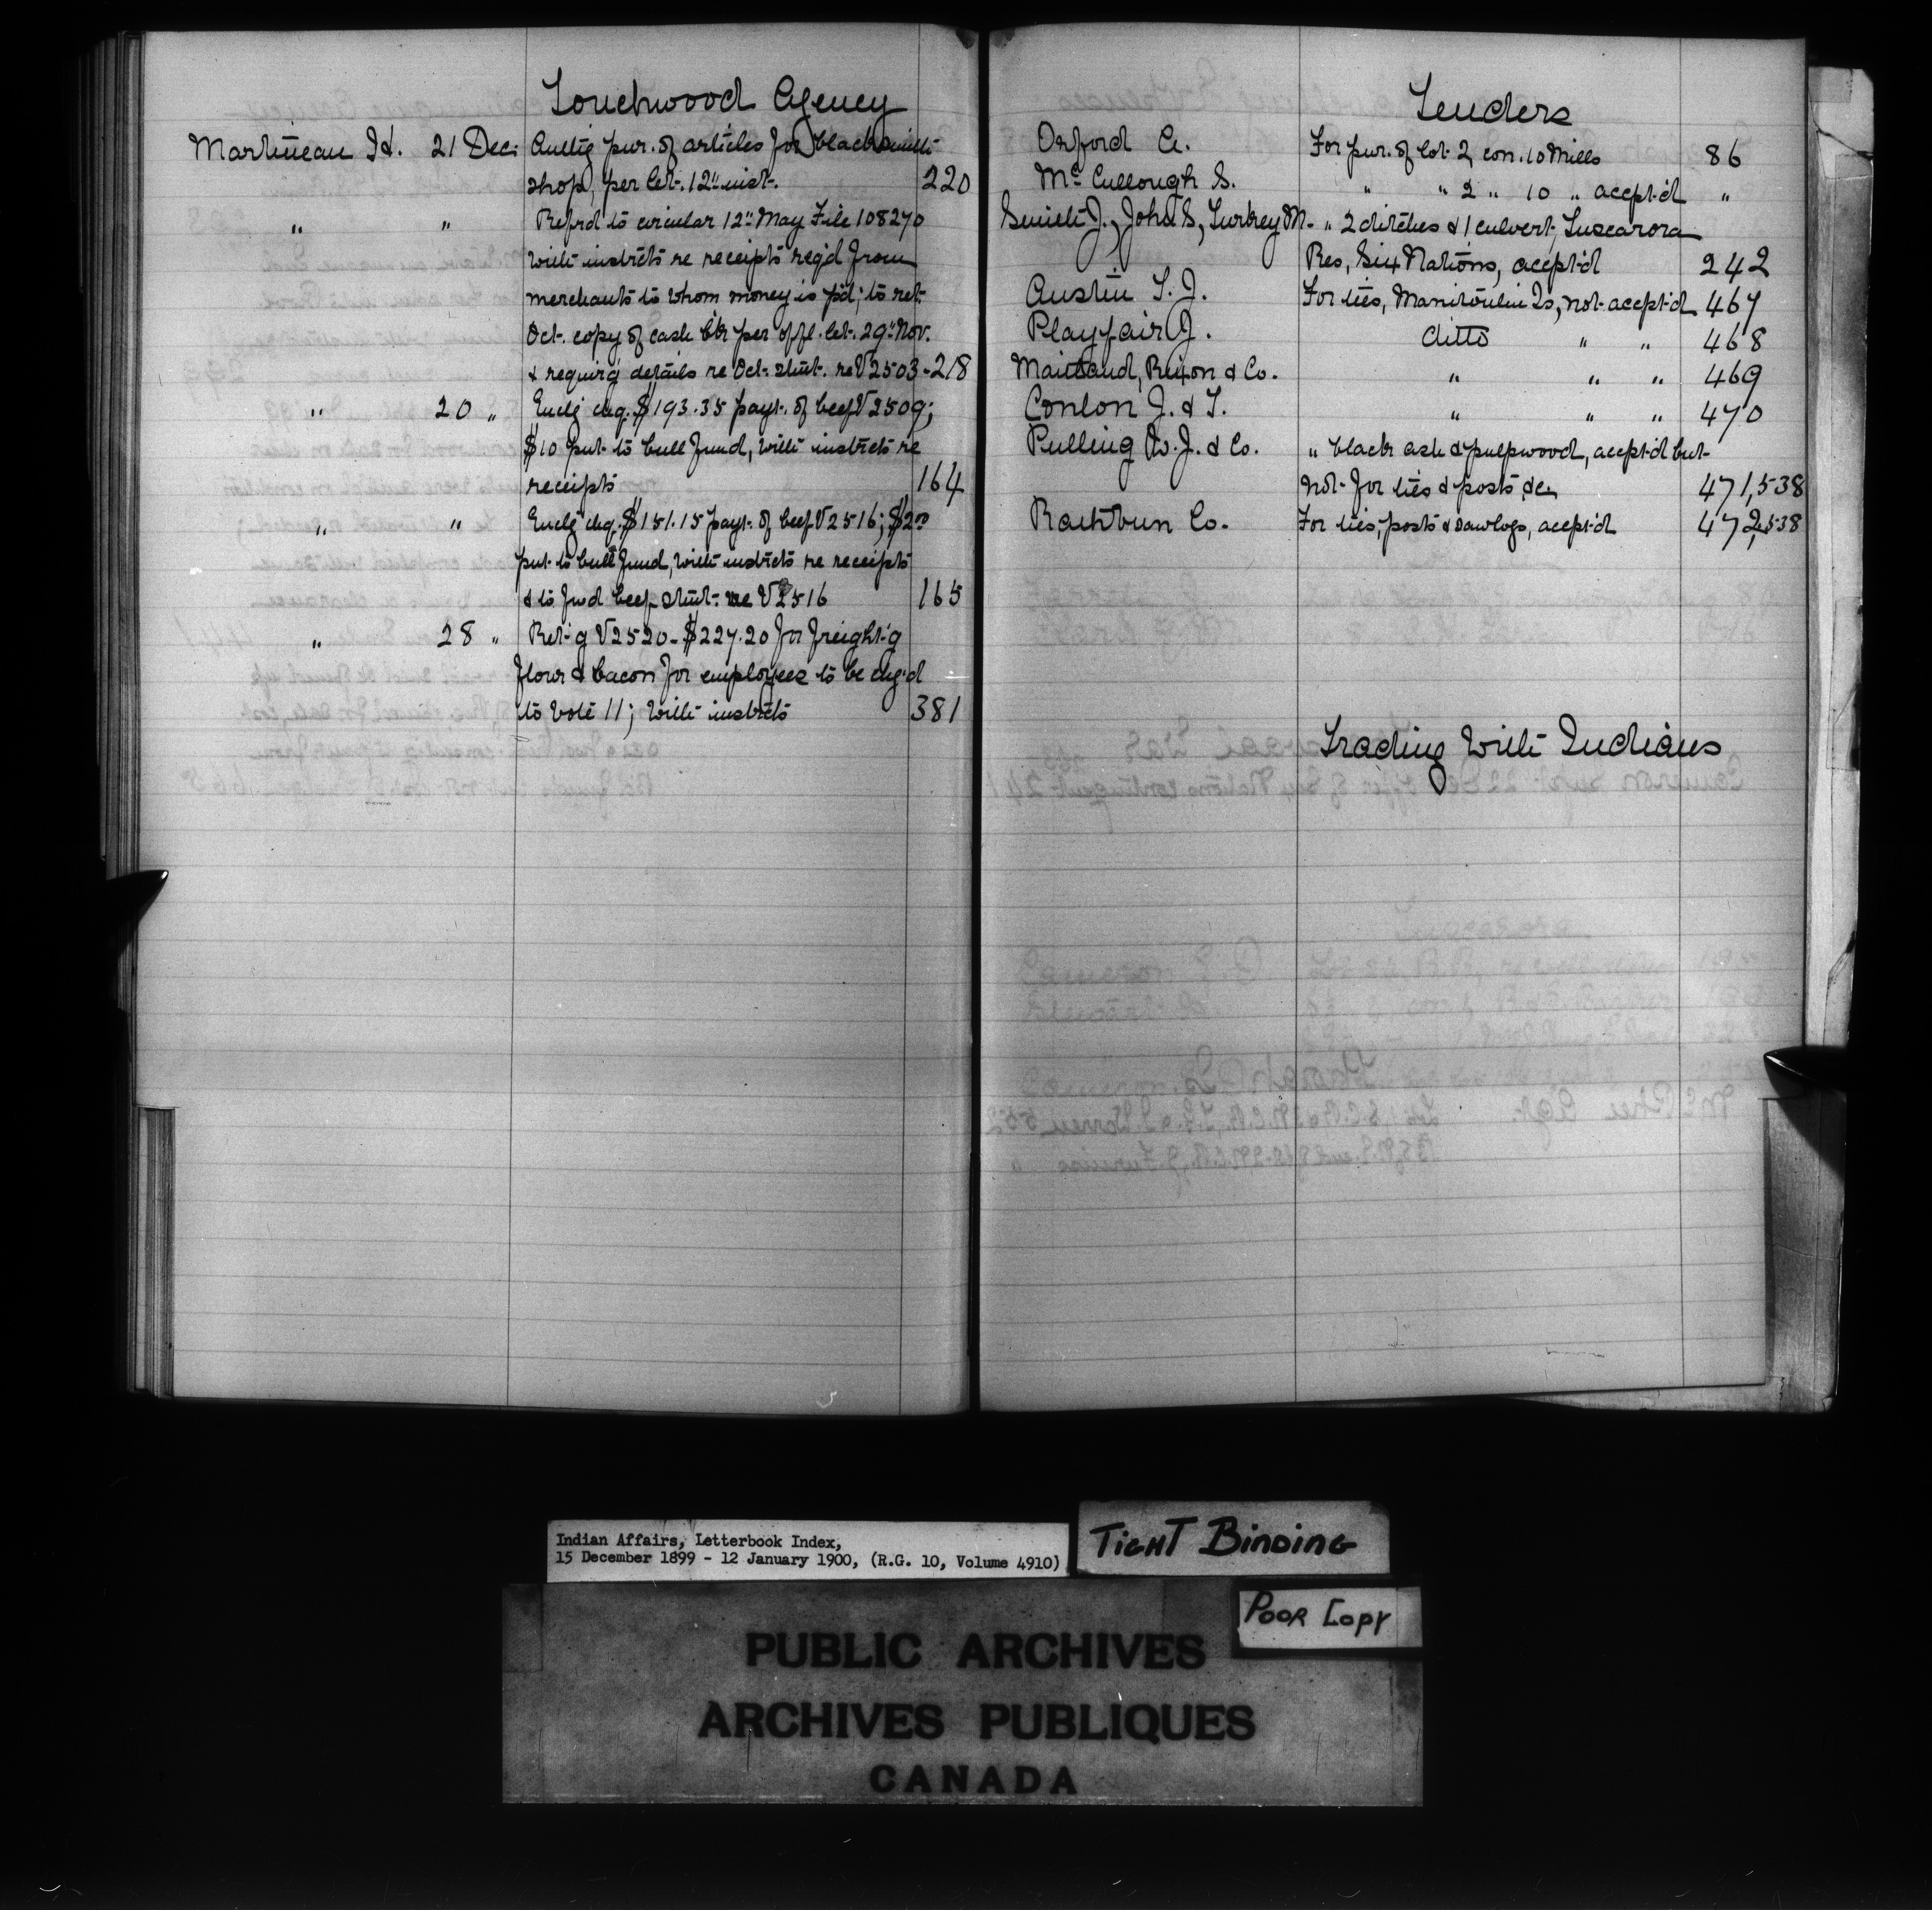 Touchwood Agency
Martineau H. 21 Dec. Auth'g pur. of articles for blacksmith
shop, per let. 12" inst. 220
" " Refrd to circular 12" May File 108270
with instrcts re receipts reqd from
merchants to whom money is p'd; to ret.
Oct. copy of cash b'k per offl. let. 29" Nov.
& requir'g details re Oct. stmt. re V2503 - 218
" 20 " Encl'g chq. $193.35 payt. of beef V2509;
$10 put to bull fund, with instrcts re
receipts 164
" " Encl'g chq. $151.15 payt. of beef V2516; $2.00
put to bull fund, with instrcts re receipts
& to fwd beef stmt. re V2516 165
" 28 " Ret'g V2520 - $227.20 for freight'g
flour & bacon for employees to be chg'd
to vote 11; with instrcts 381
Tenders
Oxford C. For pur. of lot 2 con. 10 Mills 86
McCullough S. " " 2 " 10 " accept'd "
Smith J., John S., Turkey M. " 2 ditches & 1 culvert, Tuscarora
Res, Six Nations, accept'd 242
Austin T. J. For ties, Manitoulin Is, not accept'd 467
Playfair J. ditto " " 468
Maitland, Rixon & Co. " " " 469
Conlon J. & T. " " " 470
Pulling W. J. & Co. " black ash & pulpwood, accept'd but
not for ties & posts &c 471, 538
Rathbun Co. For ties, posts & sawlogs, accept'd 472, 538
Trading With Indians
Indian Affairs, Letterbook Index,
15 December 1899 - 12 January 1900, (R.G. 10, Volume 4910)
TIGHT BINDING
POOR COPY
PUBLIC ARCHIVES
ARCHIVES PUBLIQUES
CANADA